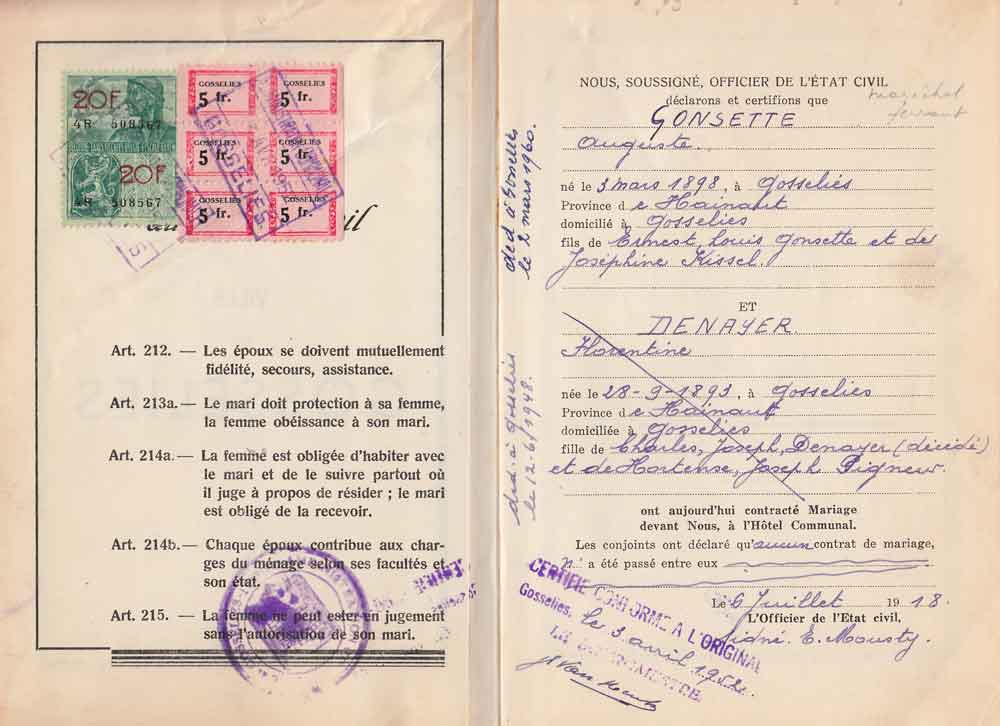 20F.
4R 508567
20F
4R 508567
GOSSELIES
5 fr.
GOSSELIES
5 fr.
GOSSELIES
5 fr.
GOSSELIES
5 fr.
GOSSELIES
5 fr.
GOSSELIES
5 fr.
GOSSELIES
Art. 212. — Les époux se doivent mutuellement
fidélité, secours, assistance.
Art. 213a. — Le mari doit protection à sa femme,
la femme obéissance à son mari.
Art. 214a. — La femme est obligée d'habiter avec
le mari et de le suivre partout où
il juge à propos de résider ; le mari
est obligé de la recevoir.
Art. 214b. — Chaque époux contribue aux char-
ges du ménage selon ses facultés et
son état.
Art. 215. — La femme ne peut ester en jugement
sans l'autorisation de son mari.
décd à Gosselies
le 2 mars 1960.
décd. à Gosselies
le 12.6/1948.
NOUS, SOUSSIGNÉ, OFFICIER DE L'ÉTAT CIVIL
déclarons et certifions que
maréchal
ferrant
GONSETTE
Auguste.
né le 3 mars 1898, à Gosselies
Province de Hainaut
domicilié à Gosselies
fils de Ernest, Louis Gonsette et de
Joséphine Kissel.
ET
DENAYER
Florentine
née le 28-9-1893, à Gosselies
Province de Hainaut
domiciliée à Gosselies
fille de Charles, Joseph, Denayer (décédé)
et de Hortense, Joseph Pigneur.
ont aujourd'hui contracté Mariage
devant Nous, à l'Hôtel Communal.
Les conjoints ont déclaré qu'aucun contrat de mariage,
n' a été passé entre eux
Le 6 Juillet 1918.
L'Officier de l'Etat civil,
Signé E. Mousty.
CERTIFIÉ CONFORME A L'ORIGINAL
Gosselies, le 3 avril 1952.
LE BOURGMESTRE.